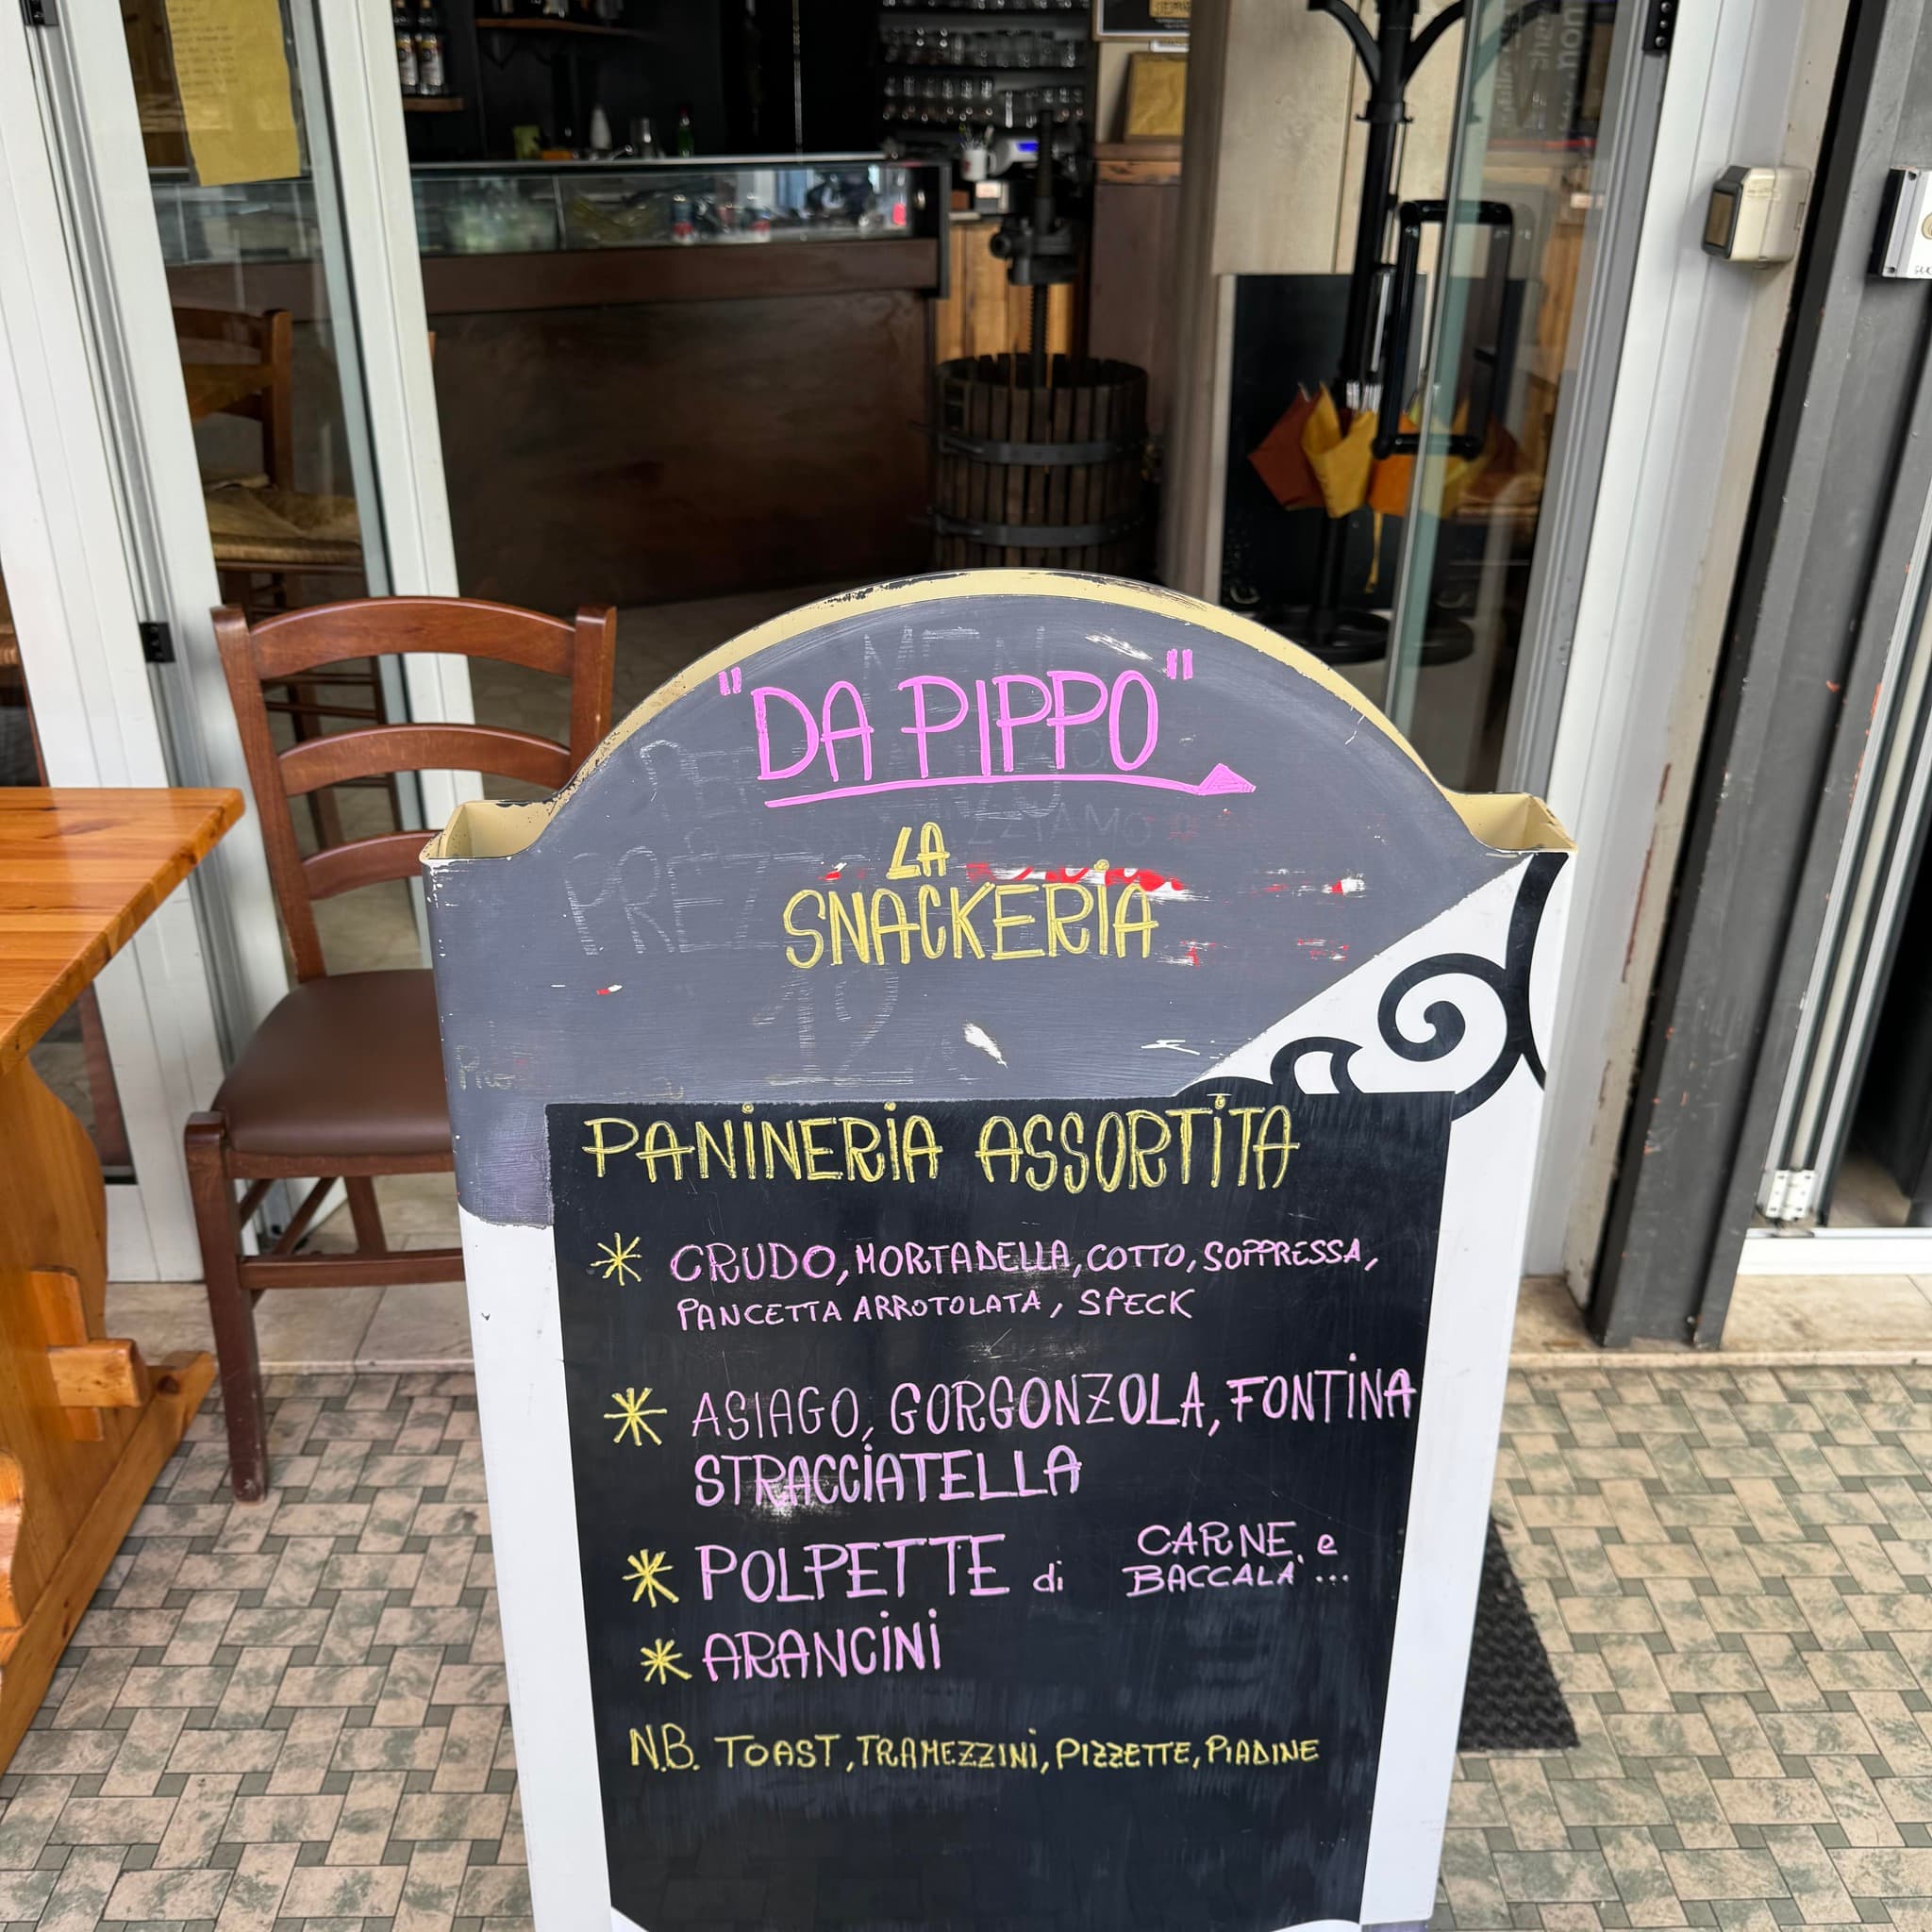 "DA PIPPO"
LA
SNACKERIA
PANINERIA ASSORTITA
* CRUDO, MORTADELLA, COTTO, SOPPRESSA,
PANCETTA ARROTOLATA, SPECK
* ASIAGO, GORGONZOLA, FONTINA
STRACCIATELLA
* POLPETTE di CARNE e
BACCALÀ ...
* ARANCINI
N.B. TOAST, TRAMEZZINI, PIZZETTE, PIADINE